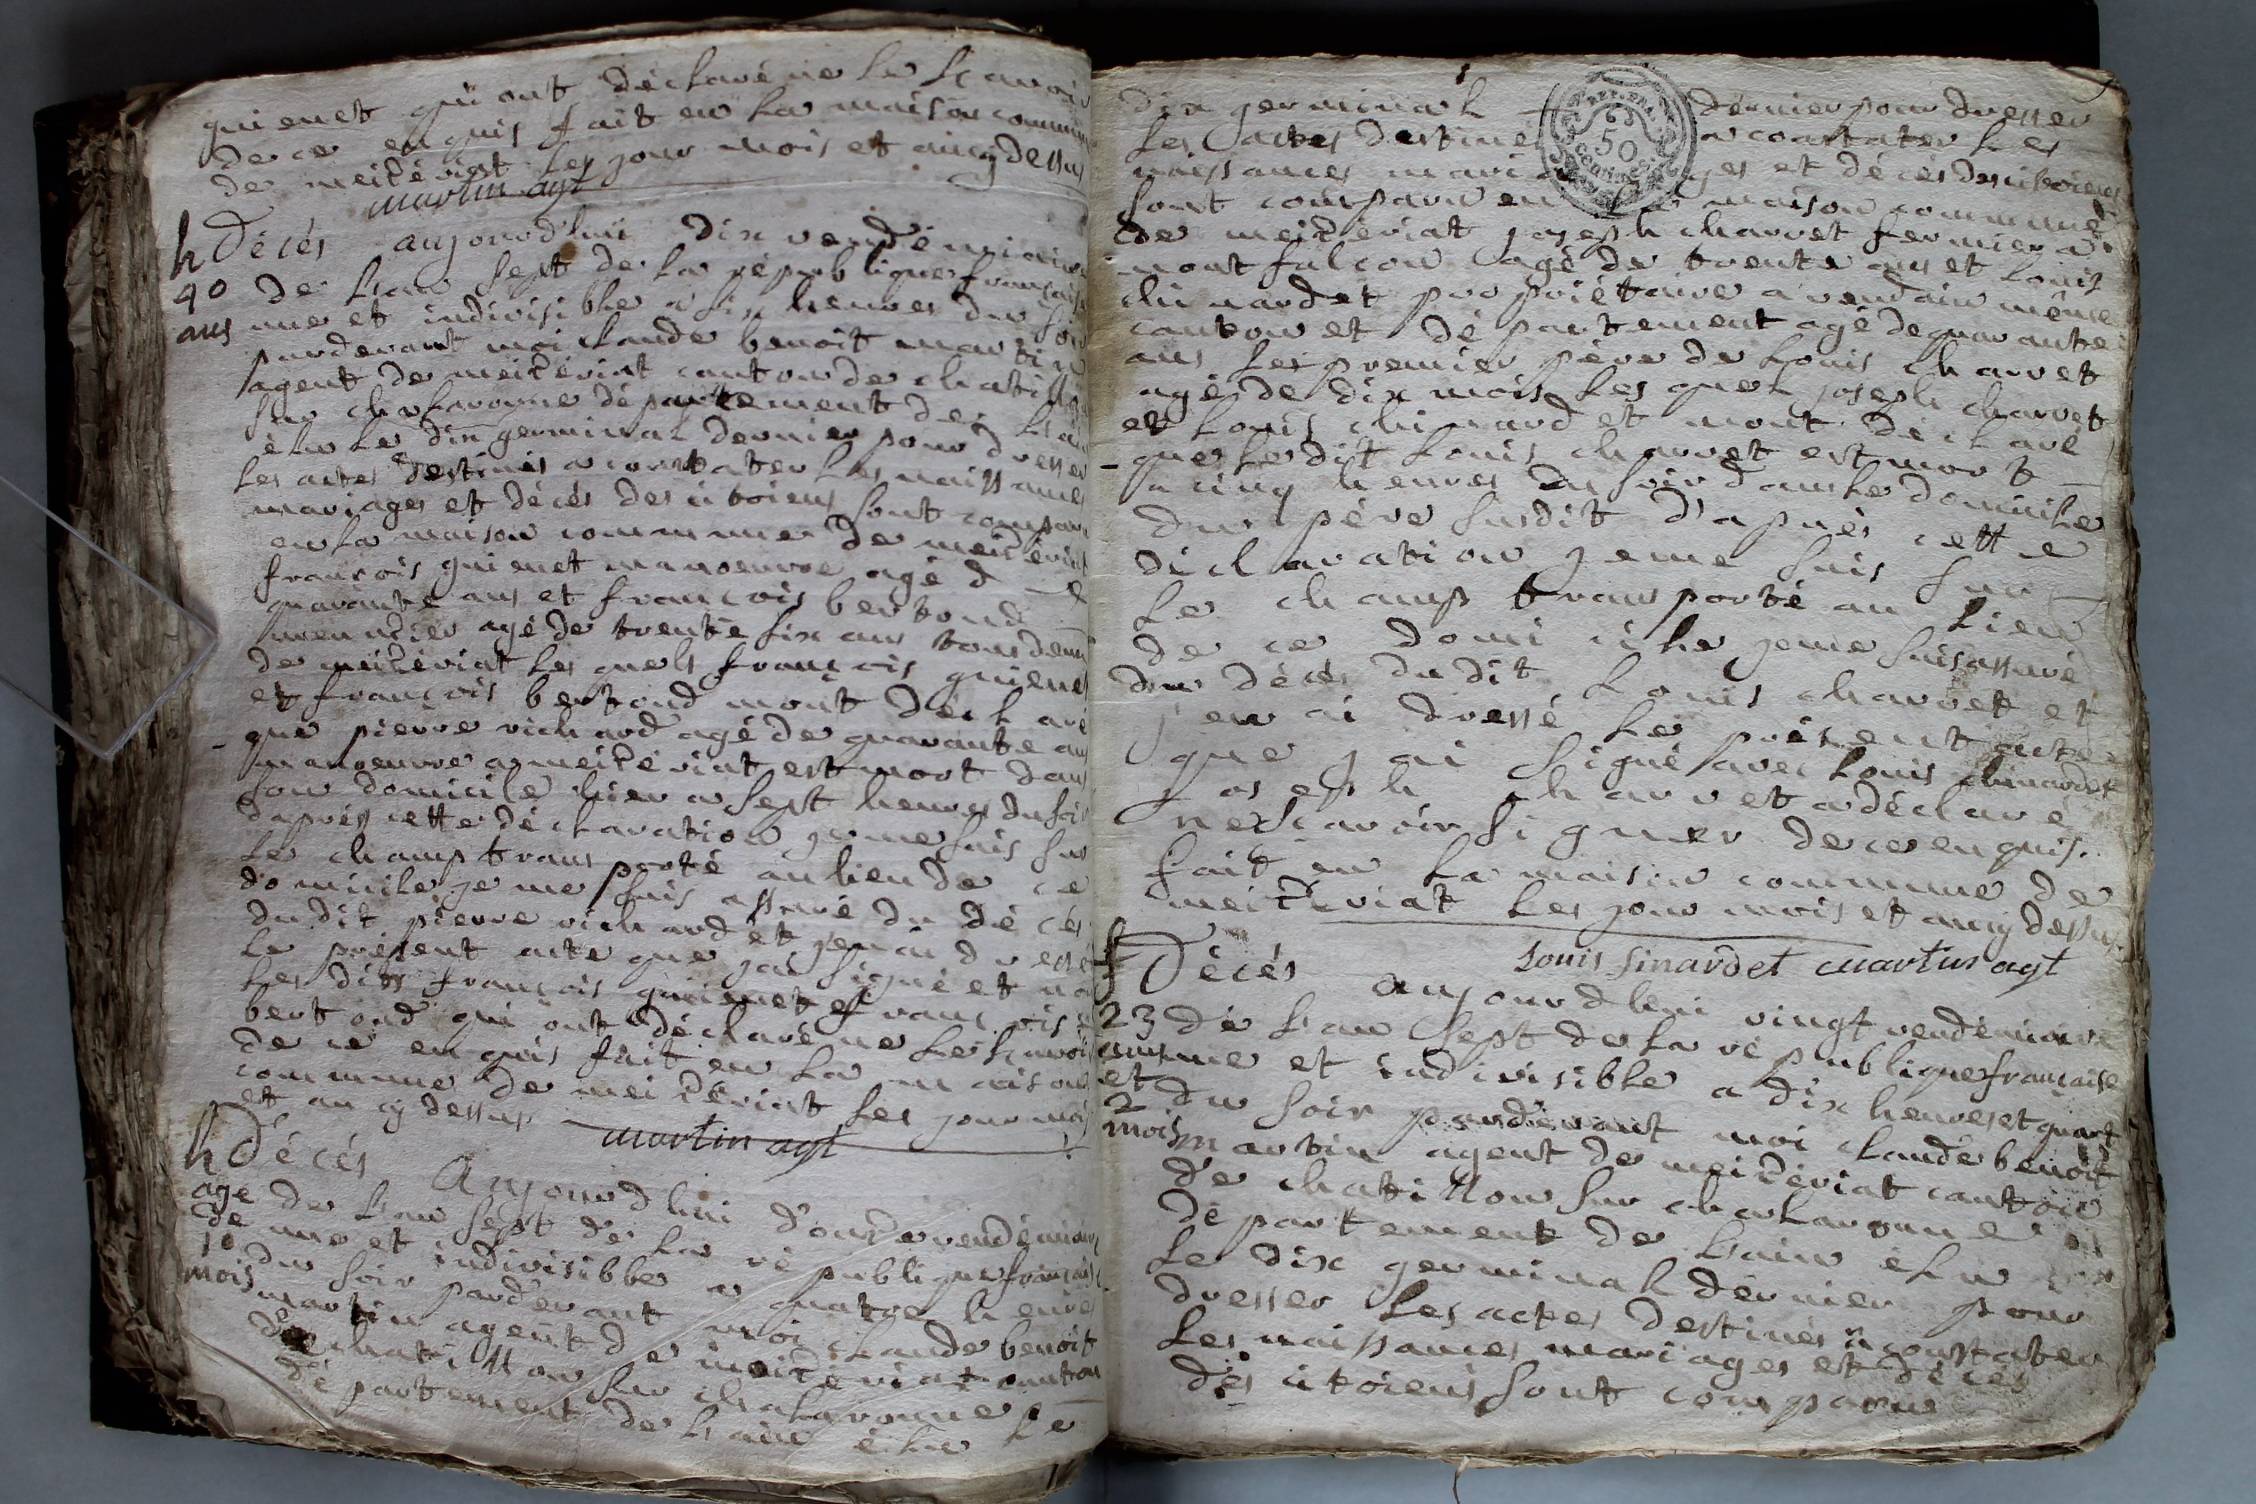 guienet qui ont déclaré ne le scavoir
de ce enquis fait en la maison commune
de meitériat les jour mois et an cy dessus
martin agt
h Décés aujourd'hui dix vendémiaire
40 de l'an sept de la république française
ans une et indivisible a six heures du soir
pardevant moi claude benoit martin
agent de meitériat canton de chatillon
sur chalaronne département de l'ain
élu le dix germinal dernier pour dresser
les actes destinés a constater les naissances
mariages et décés des citoiens sont comparu
en la maison commune de meitériat
françois guienet manoeuvre agé de
quarante ans et françois bertond
agé de trente six ans tous deux
de meitériat les quels françois guienet
et françois bertond mont déclaré
que pierre richard agé de quarante ans
manoeuvre a meitériat est mort dans
son domicile hier a sept heures du soir
daprés cette déclaration je me suis sur
le champ transporté au lieu de ce
domicile je me suis assuré du décés
du dit pierre richard et jen ai dressé
le présent acte que jai signé et non
les dits françois guienet et françois
bertond qui ont déclaré ne le scavoir
de ce enquis fait en la maison
commune de meitériat les jour mois
et an cy dessus
martin agt
h Décés Aujourdhui douze vendémiaire
age de l'an sept de la république française
de une et indivisible a quatre heures
10 du soir pardevant moi claude benoit
mois martin agent de meitériat canton
de chatillon sur chalaronne
département de l'ain élu le
dix germinal dernier pour dresser
les actes destinés a constater les
naissances mariages et décés des citoiens
sont comparu en la maison commune
de meitériat joseph charvet fermier a
montfalcon agé de trente ans et louis
chinardet propriétaire a vendain même
canton et département agé de quarante
ans le premier pére de louis charvet
agé de dix mois les quels joseph charvet
et louis chinardet mont déclaré
que le dit louis charvet est mort
a cinq heures du soir dans le domicile
du pére susdit d'aprés cette
déclaration je me suis sur
le champ transporté au lieu
de ce domicile je me suis assuré
du décés du dit louis charvet et
j'en ai dressé le présent acte
que j ai signé avec louis chinardet
joseph charvet a déclaré
ne scavoir signer de ce enquis.
fait en la maison commune de
meitériat les jour mois et an cy dessus
Louis sinardet martin agt
f Décés aujourdhui vingt vendémiaire
23 de l'an sept de la république française
ans une et indivisible a dix heures et quart
et du soir pardevant moi claude benoit
2 mois martin agent de meitériat canton
de chatillon sur chalaronne
département de l'ain élu
le dix germinal dernier pour
dresser les actes destinés a constater
les naissances mariages et décés
des citoiens sont comparu
REP. FRA.
50
CENTIMES